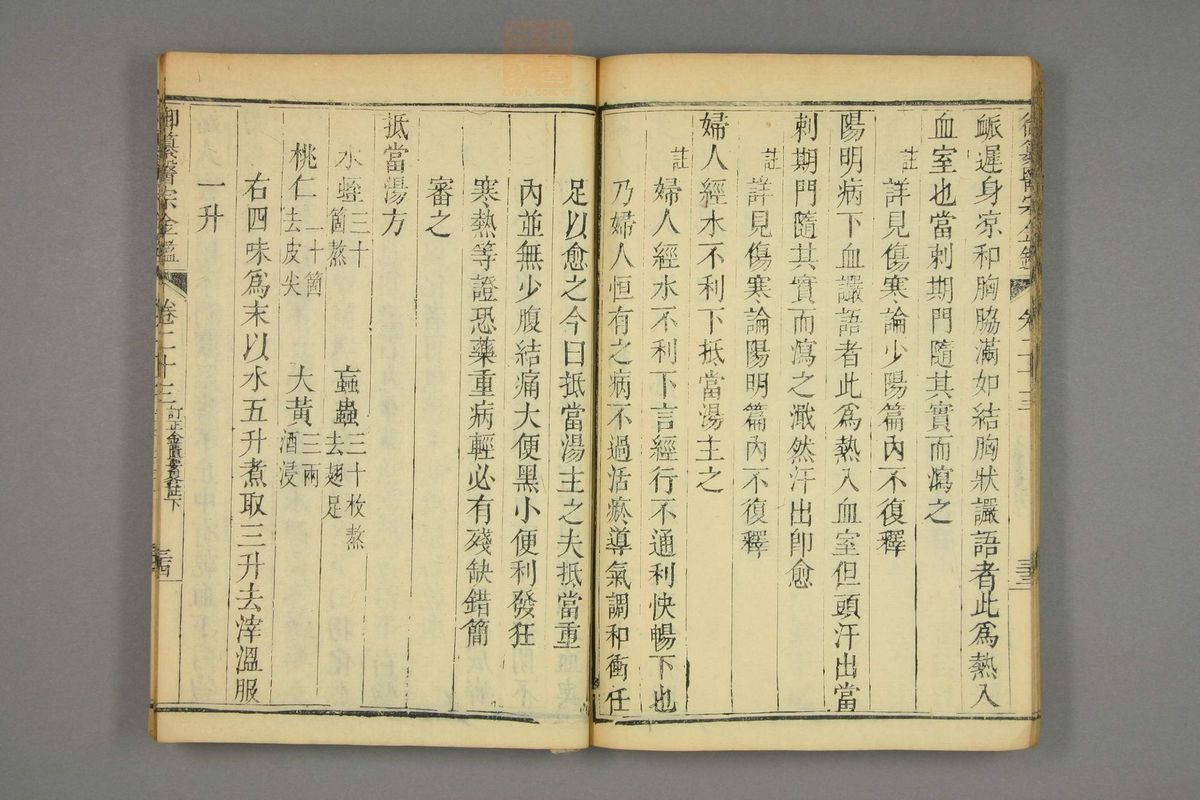 御纂醫宗金鑑 卷二十三 三十三
脈遲身凉和胸脇滿如結胸狀讝語者此爲熱入
血室也當刺期門隨其實而瀉之
註 詳見傷寒論少陽篇內不復釋
陽明病下血讝語者此爲熱入血室但頭汗出當
刺期門隨其實而瀉之濈然汗出卽愈
註 詳見傷寒論陽明篇內不復釋
婦人經水不利下抵當湯主之
註 婦人經水不利下言經行不通利快暢下也
乃婦人恒有之病不過活瘀導氣調和衝任
足以愈之今曰抵當湯主之夫抵當重
內並無少腹結痛大便黑小便利發狂
寒熱等證恐藥重病輕必有殘缺錯簡
審之
抵當湯方
水蛭三十箇熬 蝱蟲三十枚熬去翅足
桃仁二十箇去皮尖 大黃三兩酒浸
右四味爲末以水五升煮取三升去滓溫服
一升
御纂醫宗金鑑 卷二十三 訂正金匱要畧註下 三十四